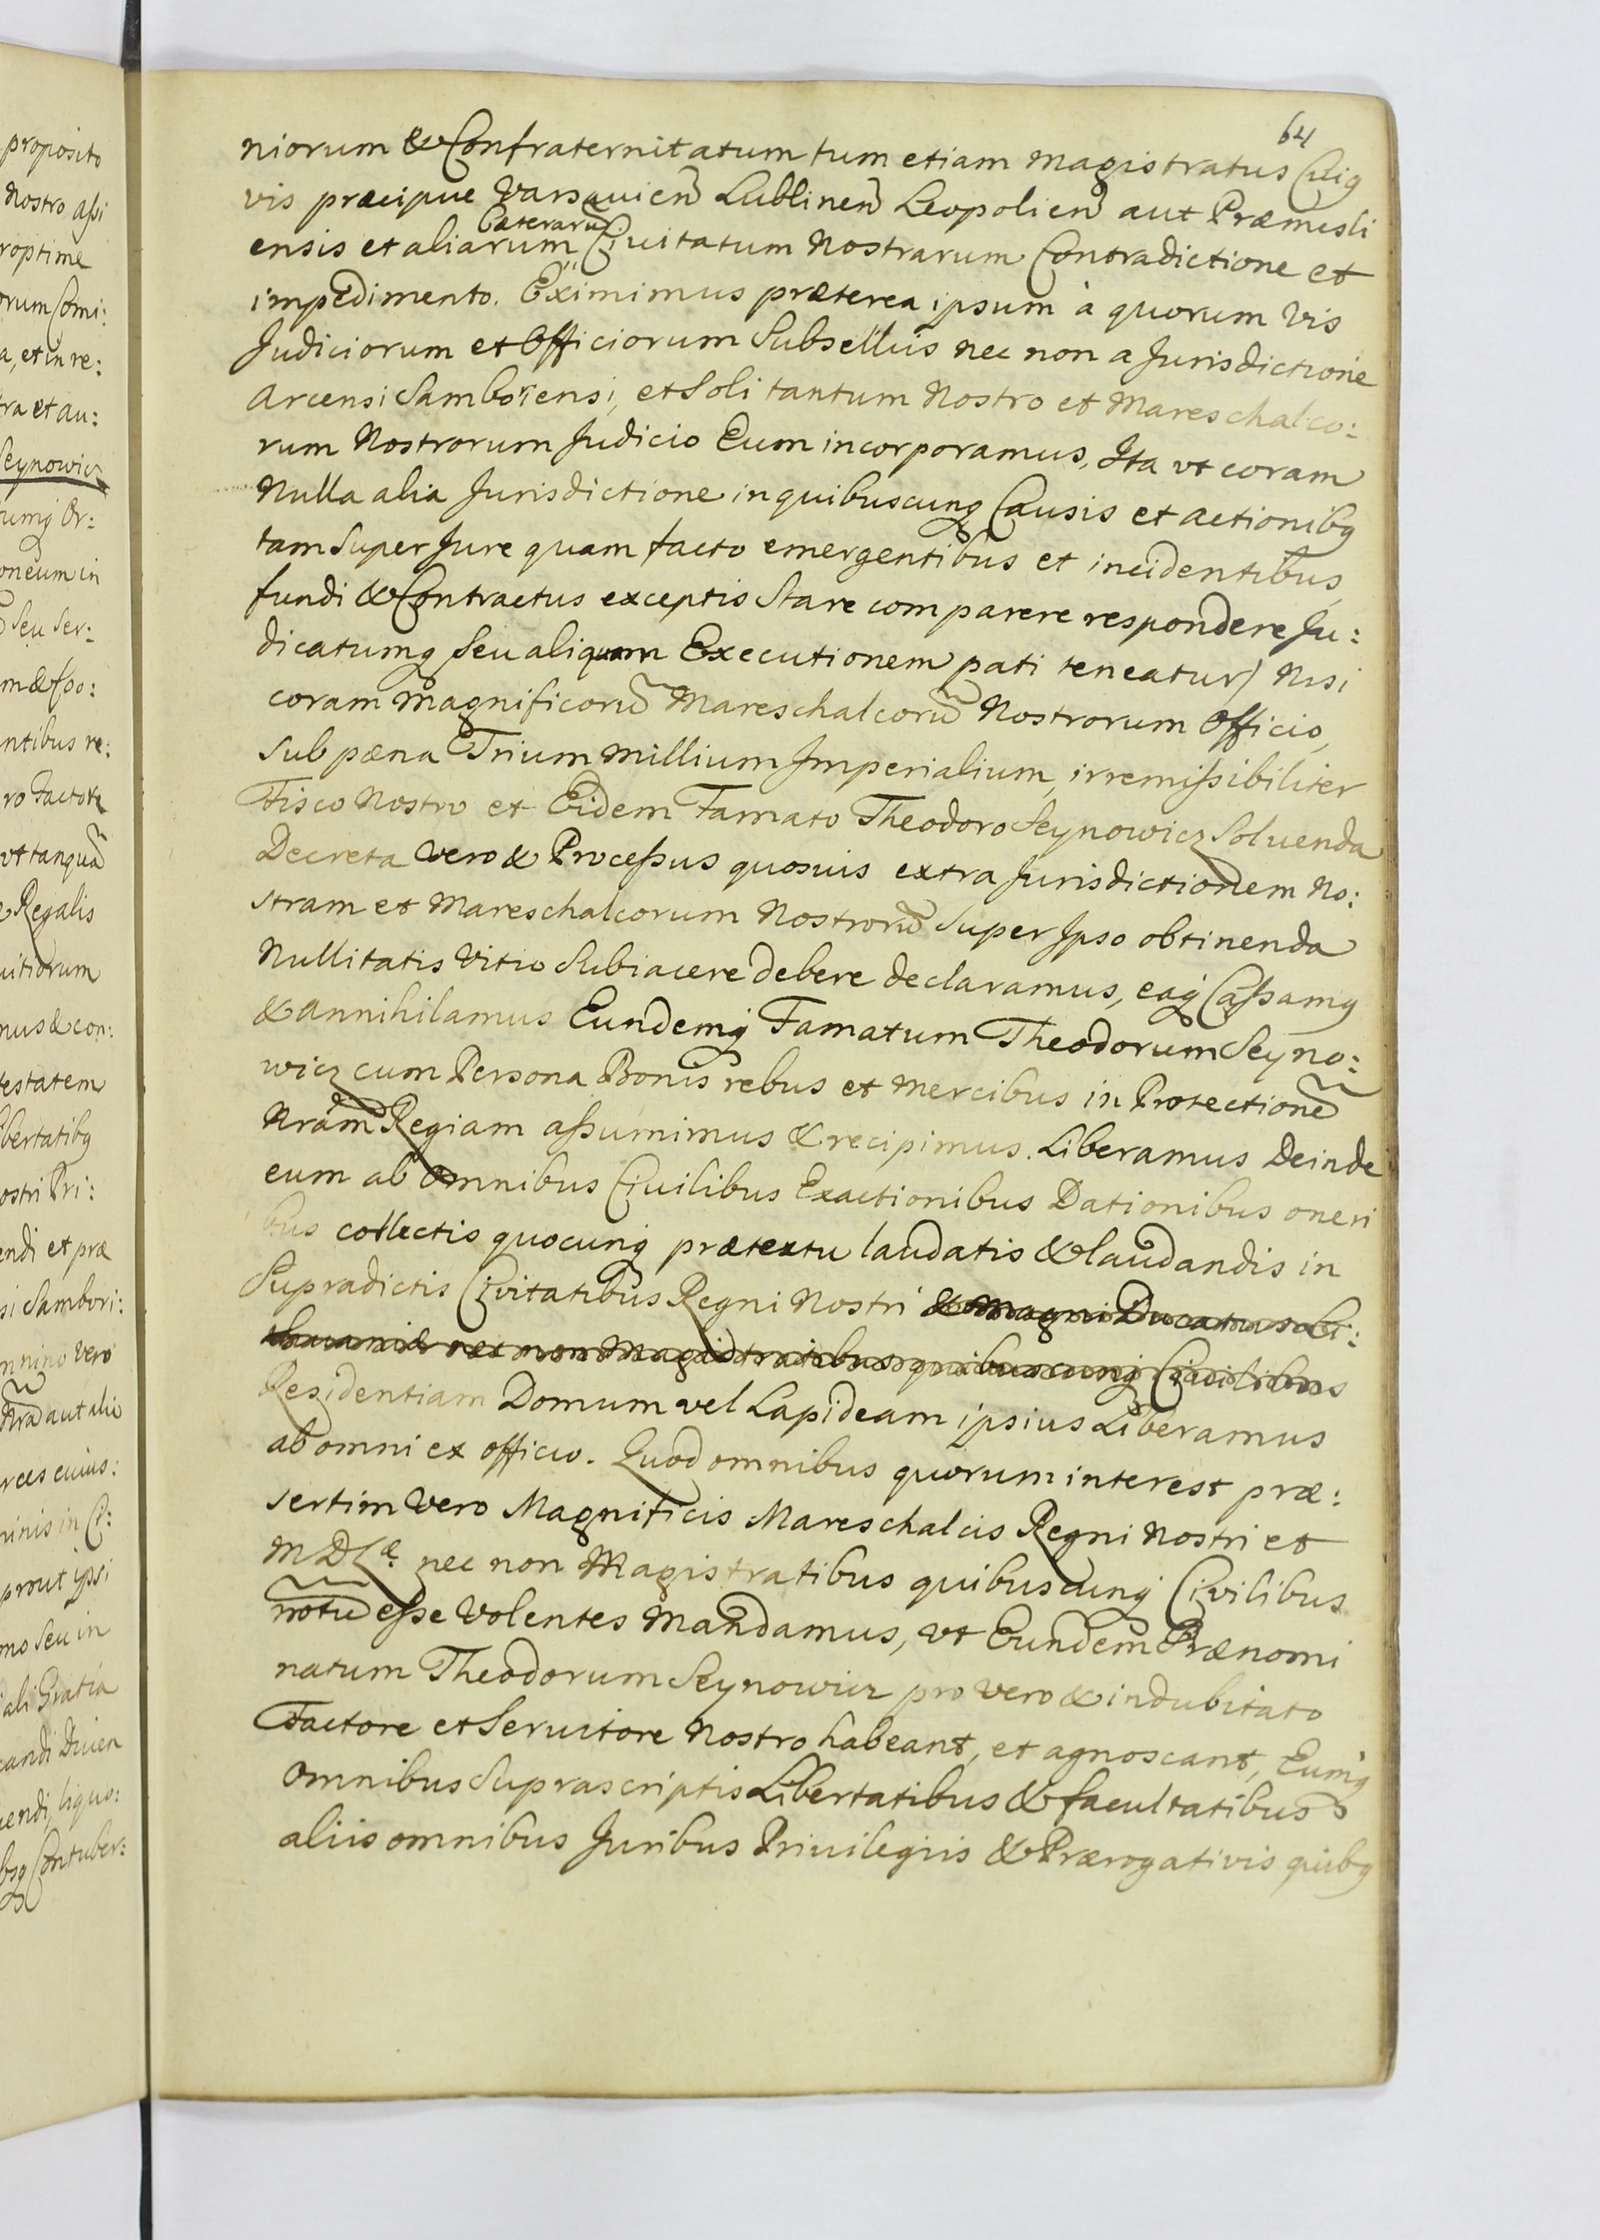 proposito
Nostro aſsi
roptime
orum Comi:
a, et in re:
tra et au:
Seynowicz
umq Or:
oneum in
Seu Ser:
m & Spo:
ntibus re:
ro Factore
vt tanqua͠
Regalis
uitiorum
nus & con:
testatem
bertatibq
ostri Pri:
endi et præ
si Sambori:
nnino vero
Nra͠ aut alie
rces cuius:
ninis in Ci:
prout ipsi
mo Seu in
iali Gratia
candi Diuen
uendi, liquo:
bsq Contuber:
64
niorum & Confraternitatum tum etiam Magistratus Cuiq
vis præcipue Varsauien͠ Lublinen͠ Leopolien͠ aut Præmisli
Cæteraru͠
ensis et aliarum Ciuitatum Nostrarum Contradictione et
impedimento. Eximimus præterea ipsum à quorum vis
Judiciorum et Officiorum Subsellijs nec non a Jurisdictione
Arcensi Samboriensi, et Soli tantum Nostro et Mareschalco:
rum Nostrorum Judicio Eum incorporamus, Ita vt coram
Nulla alia Jurisdictione in quibuscunq Causis et actionibq
tam Super Jure quam facto emergentibus et incidentibus,
fundi & Contractus exceptis Stare comparere respondere Ju:
dicatumq Seu aliquam Executionem pati teneatur) Nisi
coram Magnificoru͠ Mareschalcoru͠ Nostrorum Officio,
Sub pæna Trium Millium Imperialium, irremiſsibiliter
Fisco Nostro et Eidem Famato Theodoro Seynowicz Soluenda
Decreta vero & Proceſsus quosuis extra Jurisdictionem No:
stram et Mareschalcorum Nostroru͠ Super Ipso obtinenda
Nullitatis Vitio Subiacere debere declaramus, eaq Caſsamq
& annihilamus Eundemq Famatum Theodorum Seyno:
wicz cum Persona Bonis rebus et Mercibus in Protectione͠
Nram͠ Regiam aſsumimus & recipimus. Liberamus Deinde
eum ab omnibus Ciuilibus Exactionibus Dationibus oneri
bus collectis quocunq prætextu laudatis & laudandis in
Supradictis Civitatibus Regni Nostri & Magni Ducatus Li:
thuaniæ nec non Magistratibus quibuscunq Ciuilibus
Residentiam Domum vel Lapideam ipsius Liberamus
ab omni ex officio. Quod omnibus quorum interest præ:
sertim vero Magnificis Mareschalcis Regni Nostri et
MDLæ. nec non Magistratibus quibuscunq Civilibus
notu͠ eſse volentes Mandamus, vt Eundem Prænomi
natum Theodorum Seynowicz pro vero & indubitato
Factore et Seruitore Nostro habeant, et agnoscant, Eumq
omnibus Suprascriptis Libertatibus & facultatibus
aliis omnibus Juribus Priuilegiis & Prærogativis quibq